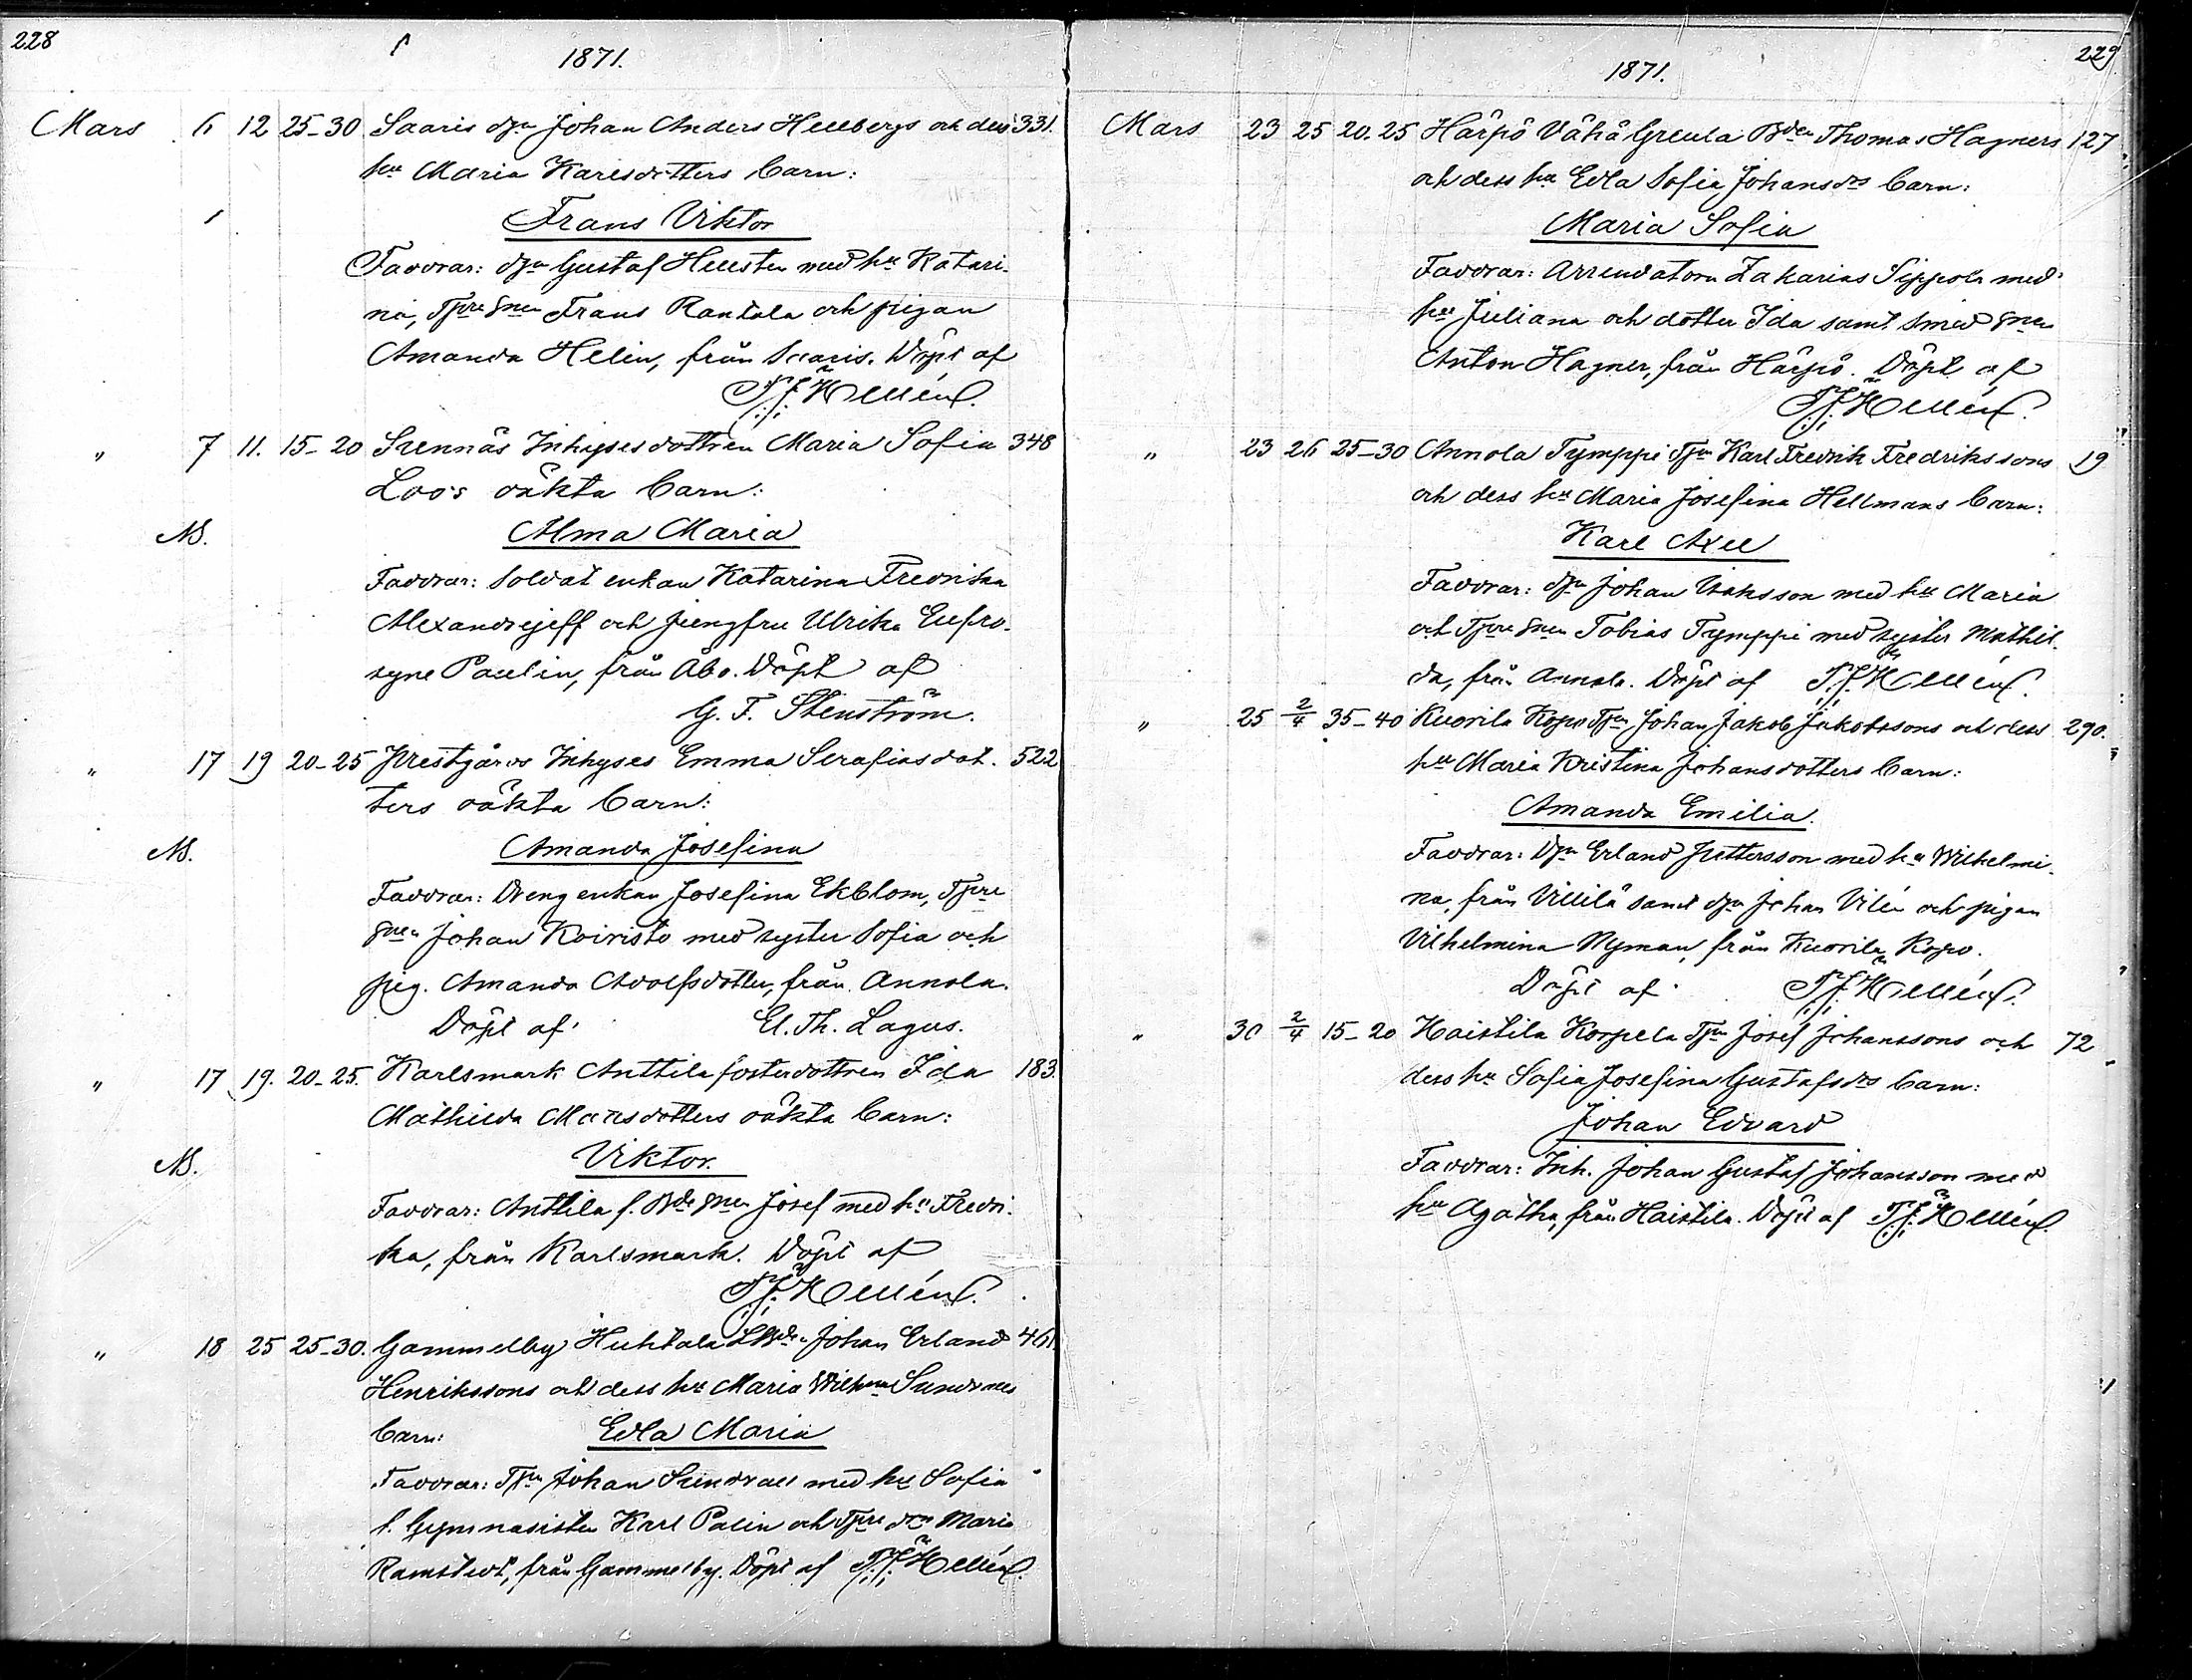 228
1871.
Mars 6 12 25-30 Saaris dgn Johan Anders Hellbergs och dess 331.
hu Maria Karlsdotters barn:
Frans Viktor
Faddrar: dgn Gustaf Hellsten med hu Katari-
na, Tpre snen Frans Rantala och pigan
Amanda Helin, från Saaris. Döpt af
" 7 11. 15-20 Sunnäs Inhysesdottren Maria Sofia 348
Loos oäkta barn:
NB. Alma Maria
Faddrar: Soldat enkan Katarina Fredrika
Alexandrejeff och jungfru Ulrika Eufro-
syne Paulin, från Åbo. Döpt af
G. F. Stenström.
" 17 19 20-25 Prestgårds Inhyses Emma Serafiasdot- 522
ters oäkta barn:
NB. Amanda Josefina
Faddrar: Dreng enkan Josefina Ekblom, Tpre
snen Johan Koivisto med syster Sofia och
pig. Amanda Adolfsdotter, från Annola.
Döpt af El. Th. Lagus.
" 17 19. 20-25. Karlsmark Anttila fosterdottren Ida 183.
Mathilda Mattsdotters oäkta barn:
NB. Viktor.
Faddrar: Anttila f. Bde snen Josef med hu Fredri-
ka, från Karlsmark. Döpt af
" 18 25 25-30. Gammelby Huhtala LBdn Johan Erland 461.
Henrikssons och dess hu Maria Wilhna Sundvalls
barn: Edla Maria
Faddrar: Tpn Johan Sundvall med hu Sofia
f. Gymnasisten Karl Palin och Tpre dtn Maria
Ramstedt, från Gammelby. Döpt af
229.
1871.
Mars 23 25 20.25 Härpö Vähä Greula Bden Thomas Hagners 127
och dess hu Edla Sofia Johansdrs barn:
Maria Sofia
Faddrar: Arrendatorn Zakarias Sippola med
hu Juliana och dotter Ida samt Smed snen
Anton Hagner, från Härpö. Döpt af
" 23 26 25-30 Annola Tymppi Tpn Karl Fredrik Fredrikssons 19
och dess hu Maria Josefina Hellmans barn:
Karl Axel
Faddrar: dgn Johan Isaksson med hu Maria
och Tpre snen Tobias Tymppi med syster Mathil-
da, från Annola. Döpt af
" 25 2/4 35-40 Kuorila Kopo Tpn Johan Jakob Jakobssons och dess 290.
hu Maria Kristina Johansdotters barn:
Amanda Emilia.
Faddrar: Dgn Erland Pettersson med hu Wilhelmi-
na, från Villilä samt dgn Johan Vilén och pigan
Vilhelmina Nyman, från Kuorila Kopo.
Döpt af
" 30 2/4 15-20 Haistila Korpela Tpn Josef Johanssons och 72
dess hu Sofia Josefina Gustafsdrs barn:
Johan Edvard
Faddrar: Inh. Johan Gustaf Johansson med
hu Agatha, från Haistila. Döpt af